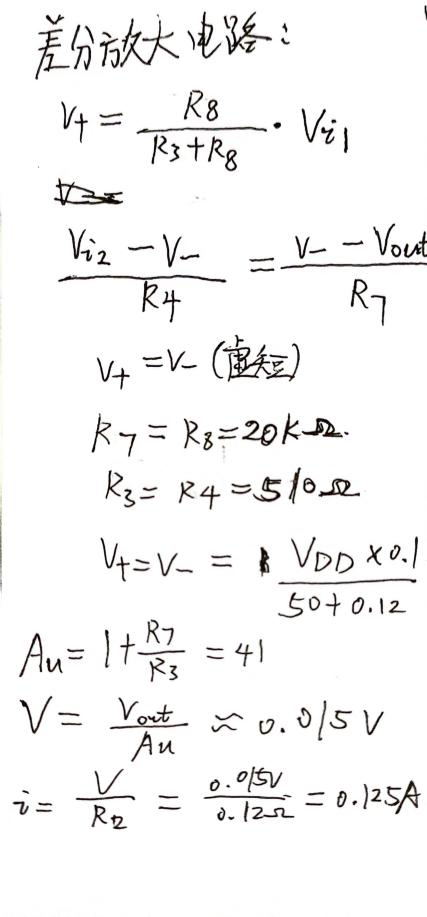 差分放大电路:
V+ = R8 / (R3+R8) · Vi1
(Vi2 - V-) / R4 = (V- - Vout) / R7
V+ = V- (虚短)
R7 = R8 = 20KΩ.
R3 = R4 = 510Ω
V+ = V- = (VDD × 0.1) / (50+0.12)
Au = 1 + R7 / R3 = 41
V = Vout / Au ≈ 0.015V
i = V / R2 = 0.015V / 0.12Ω = 0.125A